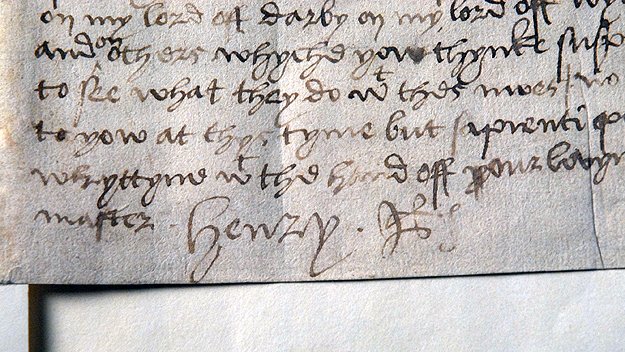 on my lord off darby on my lord off
and on others whyche yow thynke susp
to see what they do wt thes nwes no
to yow at thys tyme but sapienti
whryttyne wt the hand off your lovyn
master Henry R